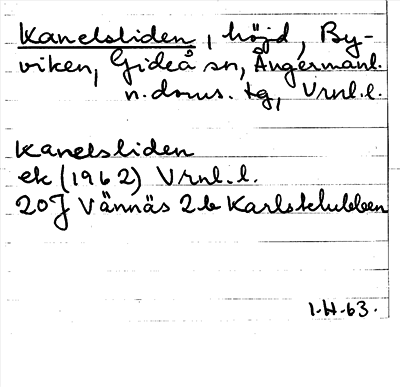 Kanelsliden, höjd, By-
viken, Gideå sn, Ångermanl.
n. doms. tg, Vrnl.l.
Kanelsliden
ek (1962) Vrnl.l.
20J Vännäs 2b Karlsklubben
1-H-63.